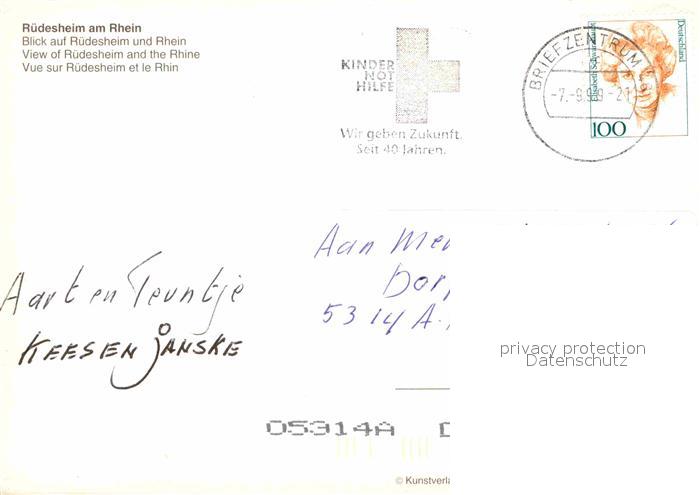 Rüdesheim am Rhein
Blick auf Rüdesheim und Rhein
View of Rüdesheim and the Rhine
Vue sur Rüdesheim et le Rhin
KINDER
NOT
HILFE
Wir geben Zukunft.
Seit 40 Jahren.
BRIEFZENTRUM
-7.-9.99-21
Deutschland
Elisabeth
100
Aan
Aart en Teuntje
KEES EN JANSKE
Dor
5314 A
privacy protection
Datenschutz
05314A D
© Kunstverla